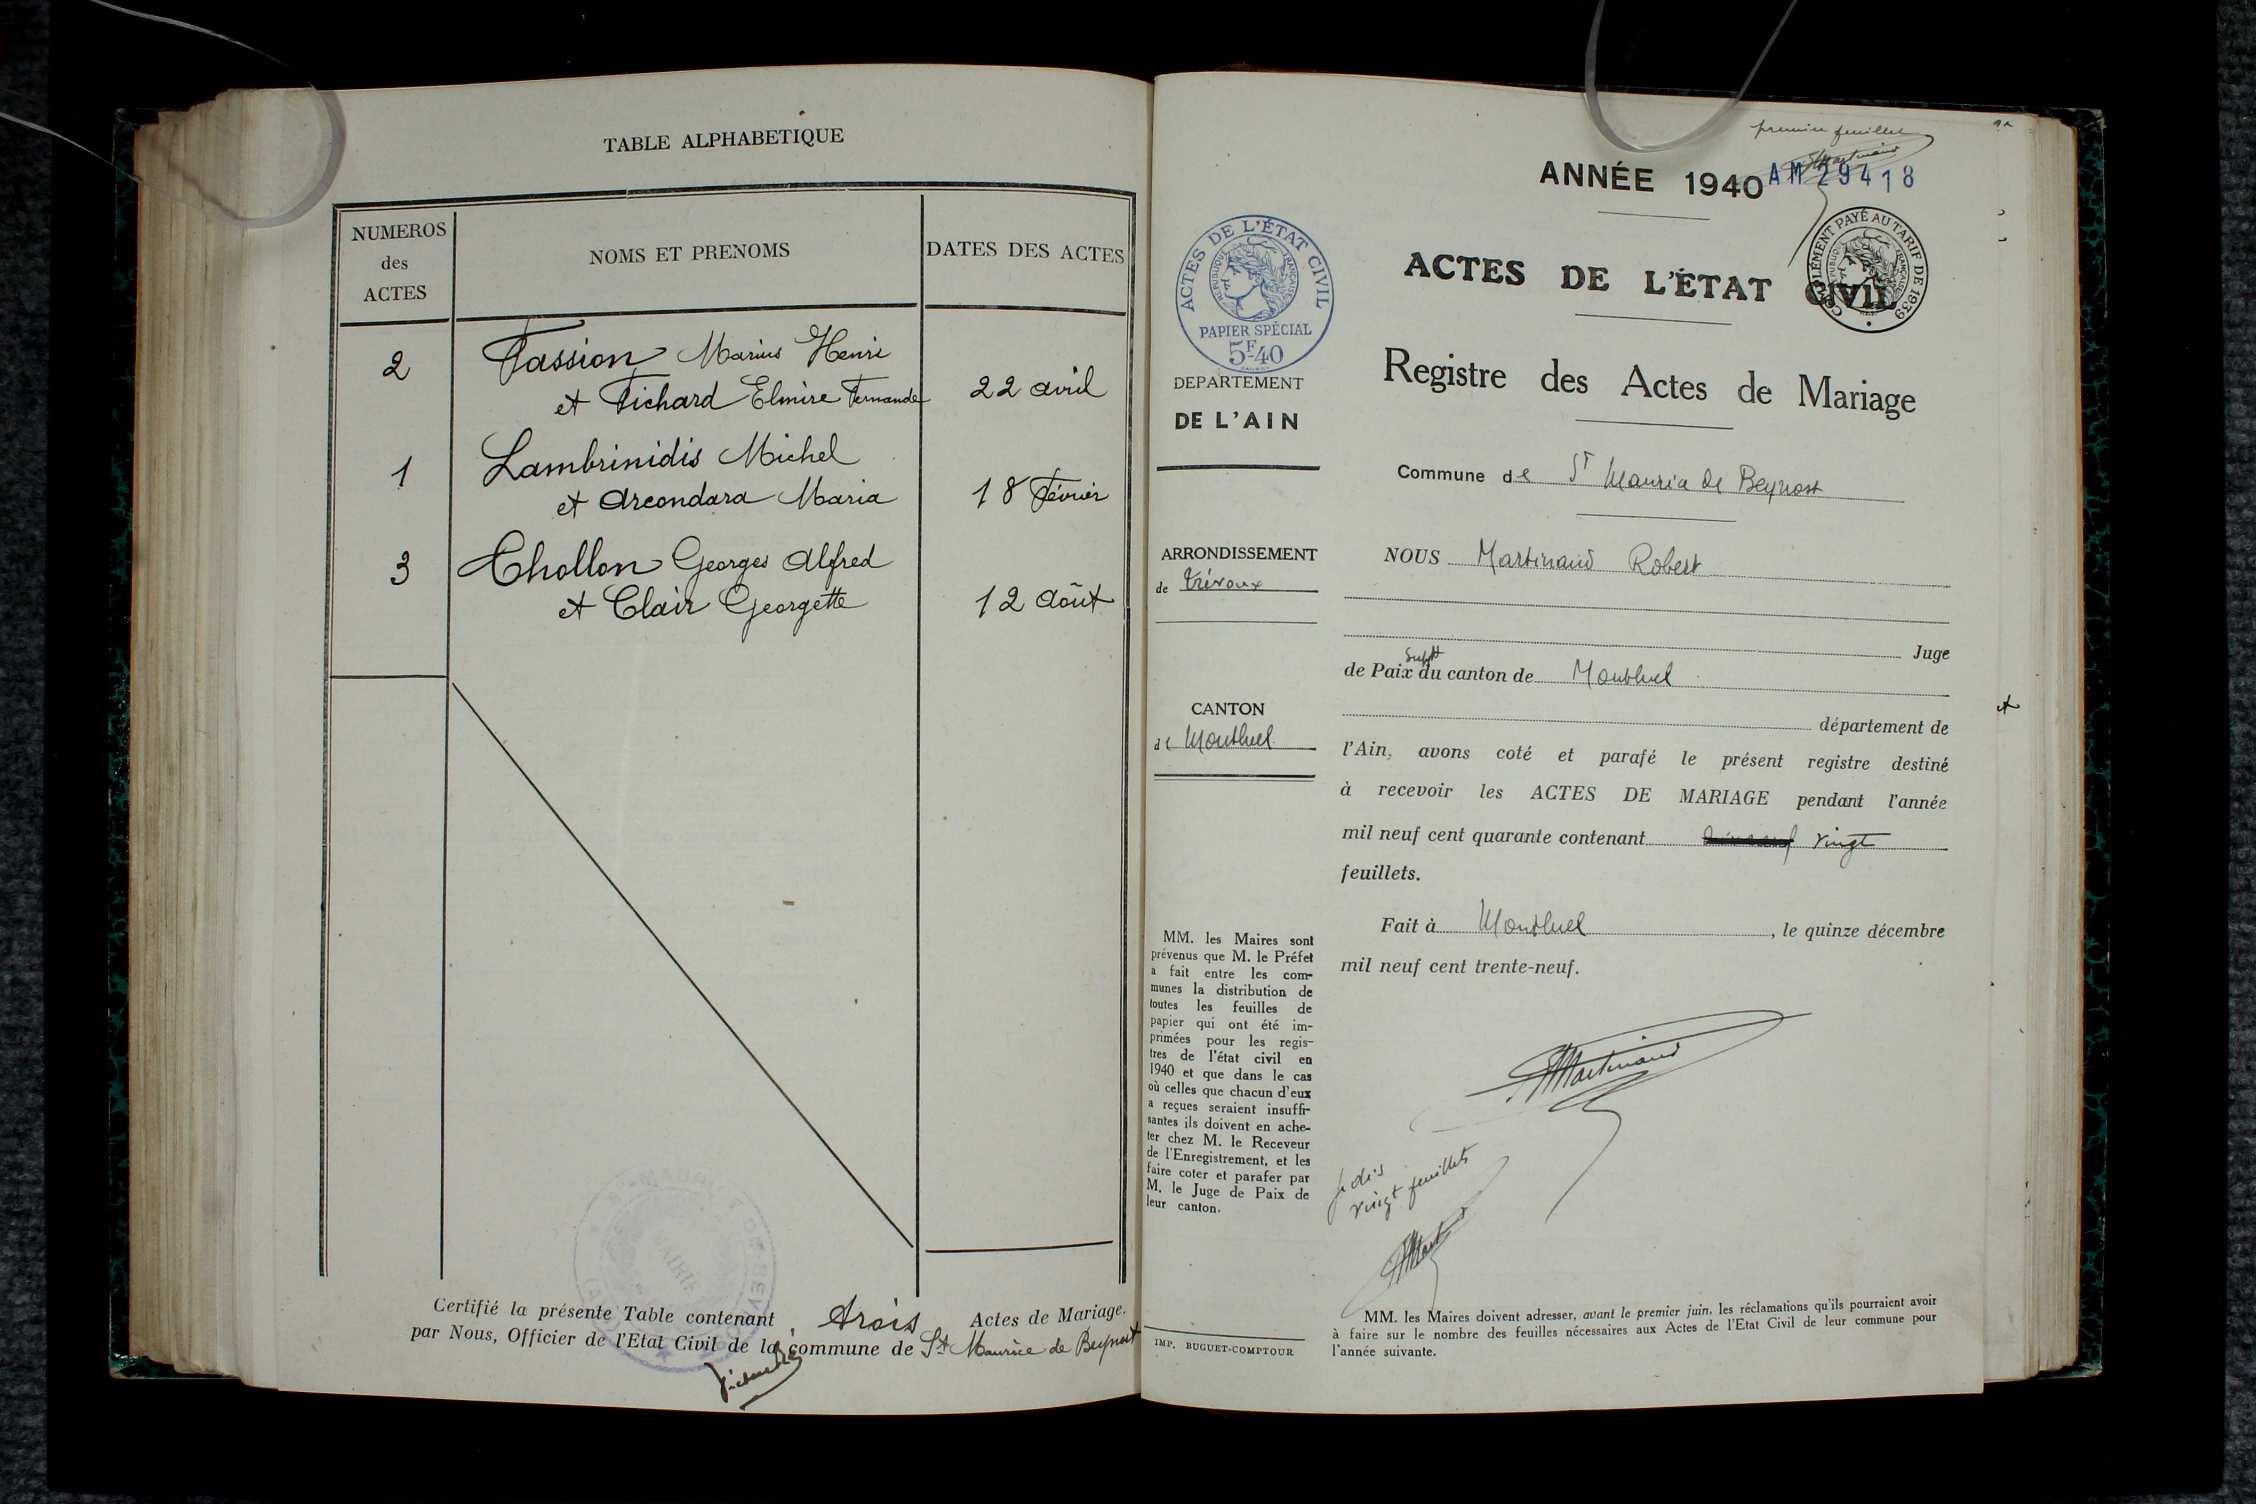 TABLE ALPHABETIQUE
NUMEROS
des
ACTES
NOMS ET PRENOMS
DATES DES ACTES
2
Fassion Marius Henri
et Fichard Elmire Fernande
22 avril
1
Lambrinidis Michel
et Arcondara Maria
18 Février
3
Thollon Georges Alfred
et Clair Georgette
12 Août
Certifié la présente Table contenant trois Actes de Mariage.
par Nous, Officier de l'Etat Civil de la commune de St Maurice de Beynost
premier feuillet
Martinand
ANNÉE 1940
AM 29418
ACTES DE L'ÉTAT CIVIL
RÉPUBLIQUE FRANÇAISE
PAPIER SPÉCIAL
5F.40
COMPLÉMENT PAYÉ AU TARIF DE 1939
RÉPUBLIQUE FRANÇAISE
ACTES DE L'ÉTAT CIVIL
Registre des Actes de Mariage
DEPARTEMENT
DE L'AIN
ARRONDISSEMENT
de Trévoux
CANTON
de Montluel
Commune de St Maurice de Beynost
NOUS Martinand Robert
Juge
Suppt
de Paix du canton de Montluel
département de
l'Ain, avons coté et parafé le présent registre destiné
à recevoir les ACTES DE MARIAGE pendant l'année
mil neuf cent quarante contenant vingt
feuillets.
Fait à Montluel, le quinze décembre
mil neuf cent trente-neuf.
Martinand
Je dis
vingt feuillets
MM. les Maires sont
prévenus que M. le Préfet
a fait entre les com-
munes la distribution de
toutes les feuilles de
papier qui ont été im-
primées pour les regis-
tres de l'état civil en
1940 et que dans le cas
où celles que chacun d'eux
a reçues seraient insuffi-
santes ils doivent en ache-
ter chez M. le Receveur
de l'Enregistrement, et les
faire coter et parafer par
M. le Juge de Paix de
leur canton.
IMP. BUGUET-COMPTOUR
MM. les Maires doivent adresser, avant le premier juin, les réclamations qu'ils pourraient avoir
à faire sur le nombre des feuilles nécessaires aux Actes de l'Etat Civil de leur commune pour
l'année suivante.